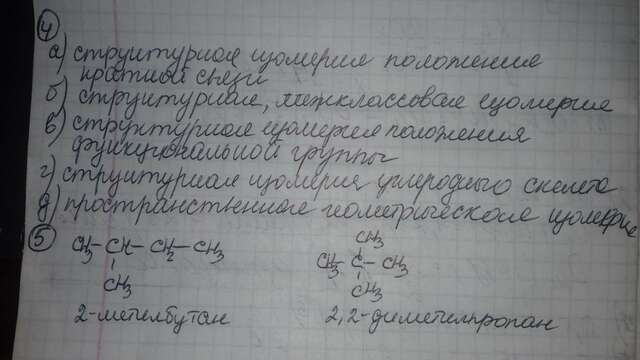 4
а) структурная изомерия положения
кратной связи
б) структурная, межклассовая изомерия
в) структурная изомерия положения
функциональной группы
г) структурная изомерия углеродного скелета
д) пространственная геометрическая изомерия
5
CH3
CH3-CH-CH2-CH3 CH3-C-CH3
CH3 CH3
2-метилбутан 2,2-диметилпропан